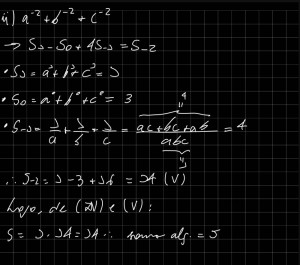 ii) a⁻² + b⁻² + c⁻²
→ S₁ - S₀ + 4S₋₁ = S₋₂
• S₁ = a¹ + b¹ + c¹ = 1
• S₀ = a⁰ + b⁰ + c⁰ = 3
• S₋₁ = 1/a + 1/b + 1/c = (ac + bc + ab)/abc = 4
4
1
∴ S₋₂ = 1 - 3 + 16 = 14 (V)
Logo, de (IV) e (V):
S = 1 · 14 = 14 ∴ soma alg. = 5